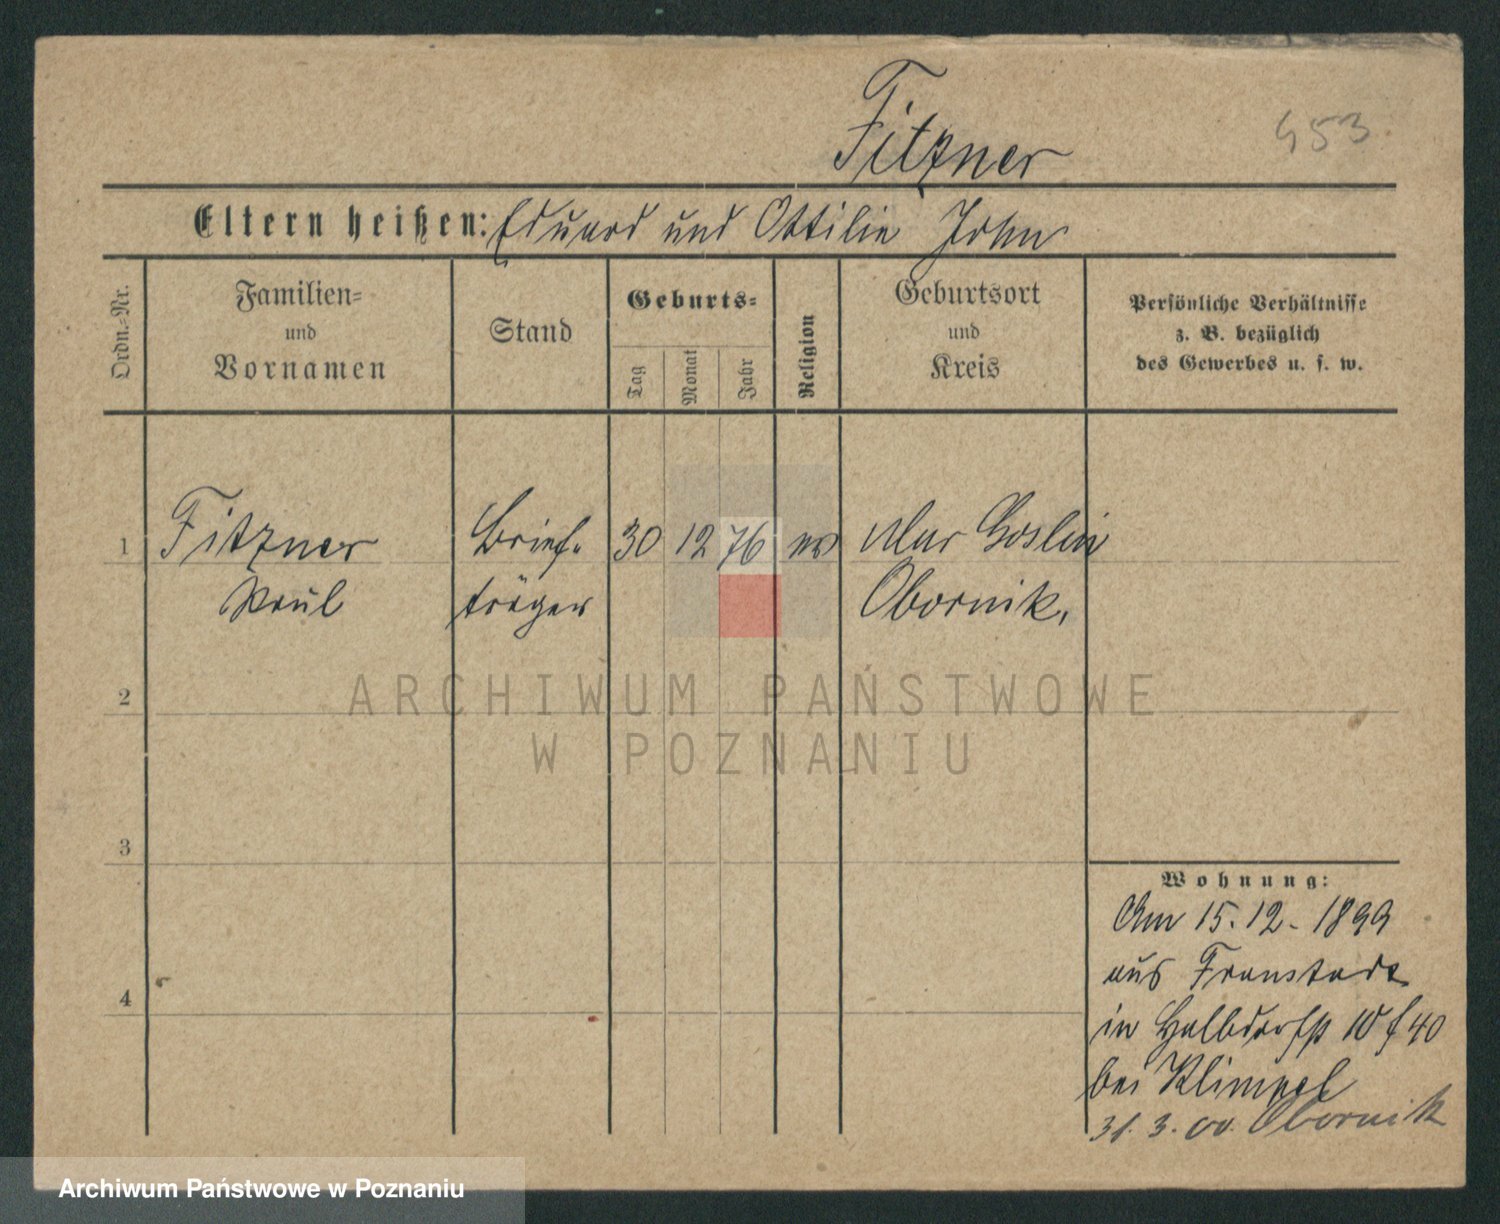 Fitzner
453
Eltern heißen: Eduard und Ottilie John
Ordn.-Nr.
Familien-
und
Vornamen
Stand
Geburts-
Tag
Monat
Jahr
Religion
Geburtsort
und
Kreis
Persönliche Verhältnisse
z. B. bezüglich
des Gewerbes u. s. w.
1 Fitzner Brief- 30 12 76 ev Mur Goslin
Paul träger Obornik.
ARCHIWUM PAŃSTWOWE
W POZNANIU
2
3
4
Wohnung:
Am 15.12.1899
aus Fraustadt
in Halbdorfstr 10 40
bei Klimpel
31.3.00. Obornik
Archiwum Państwowe w Poznaniu